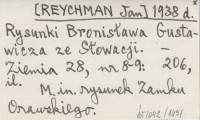 [REYCHMAN Jan] 1938 d.
Rysunki Bronisława Gusta-
wicza ze Słowacji. -
Ziemia 28, nr 8-9: 206,
il.
M.in. rysunek Zamku
Orawskiego.